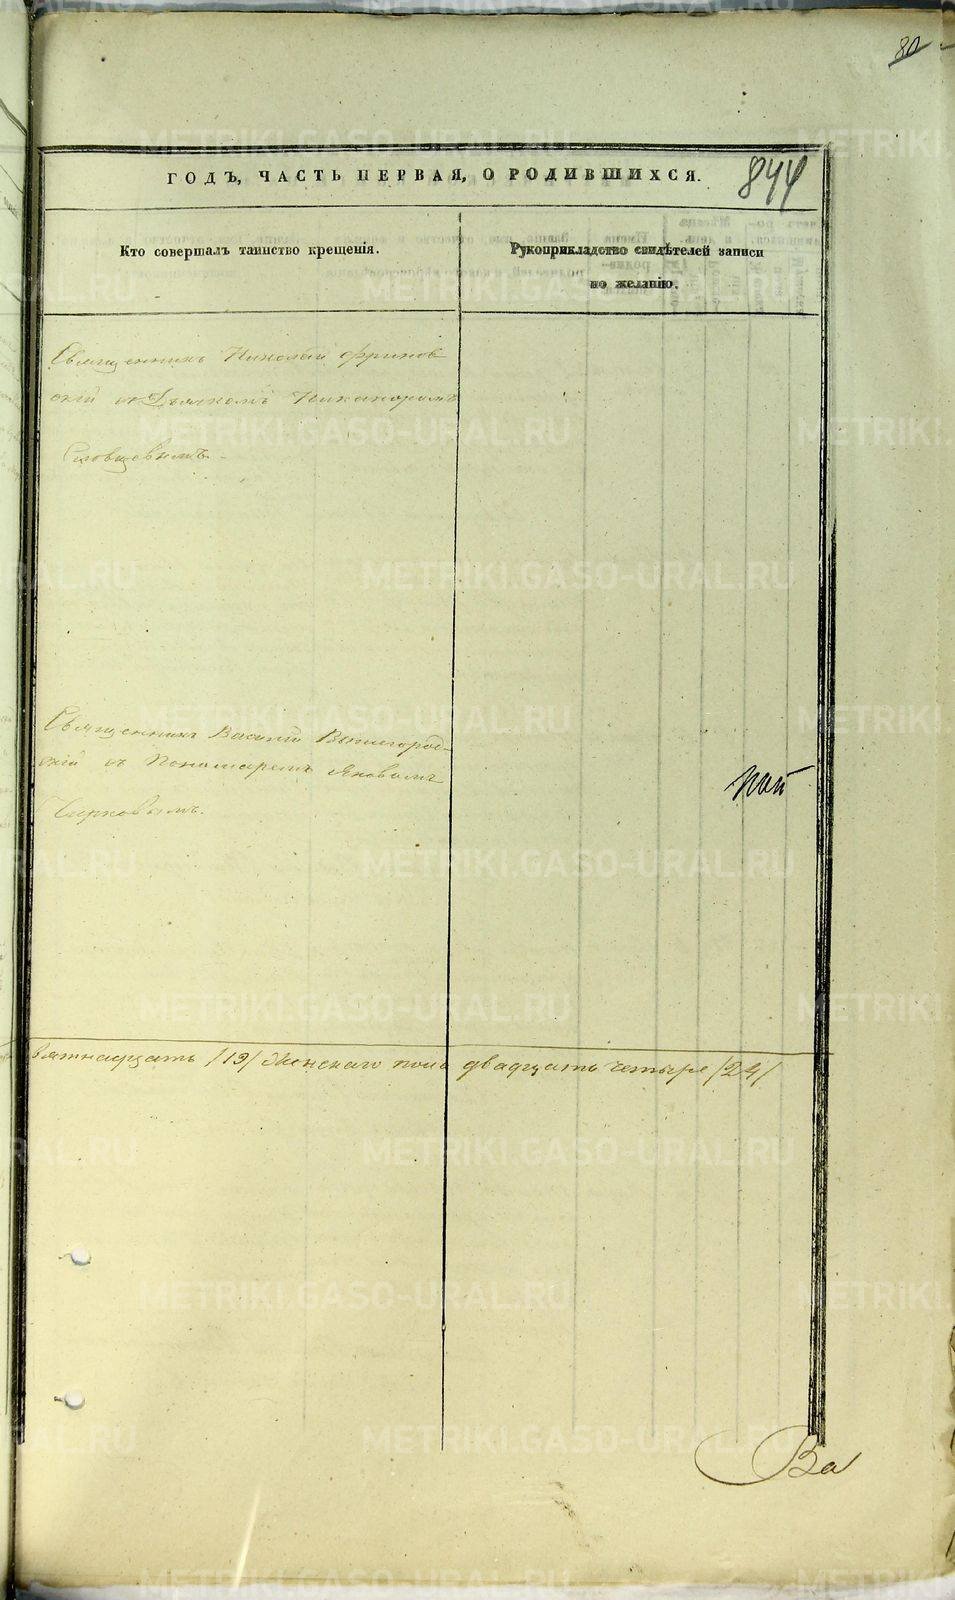 80
ГОДЪ, ЧАСТЬ ПЕРВАЯ, О РОДИВШИХСЯ. 844
Кто совершалъ таинство крещенія.
Рукоприкладство свидѣтелей записи
по желанію.
Священникъ Николай Фринов
скій съ Дьячкомъ Никаноромъ
Словцовымъ.
Священникъ Василій Вышегород-
скій съ Пономаремъ Яковомъ
Чирковымъ.
вятнадцать /19/ Женскаго пола двадцать четыре /24/
Ва
METRIKI.GASO-URAL.RU